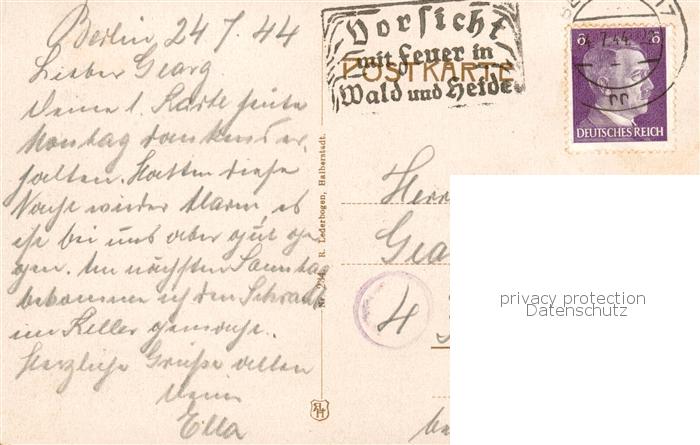 Berlin 24 7. 44
Lieber Georg
Deine l. Karte heute
Montag dankend er-
halten. Hatten diese
Nacht wieder Alarm, es
ist bei uns aber gut ge
gen. Am nächsten Sonntag
bekomme ich den Schrank
im Keller gemacht.
Herzliche Grüße allen
Dein
Ella
Vorsicht
mit Feuer in
Wald und Heide
POSTKARTE
7.44
6 6
DEUTSCHES REICH
Nr. 234 R. Lederbogen, Halberstadt.
Herr
Geo
4
be
privacy protection
Datenschutz